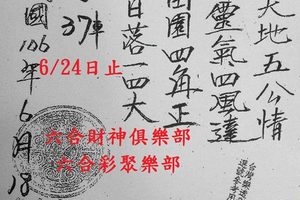 天地五公情
靈氣四風達
田園四角正
日落一四大
37車
國106年6月18
6/24日止
六合財神俱樂部
六合彩聚樂部